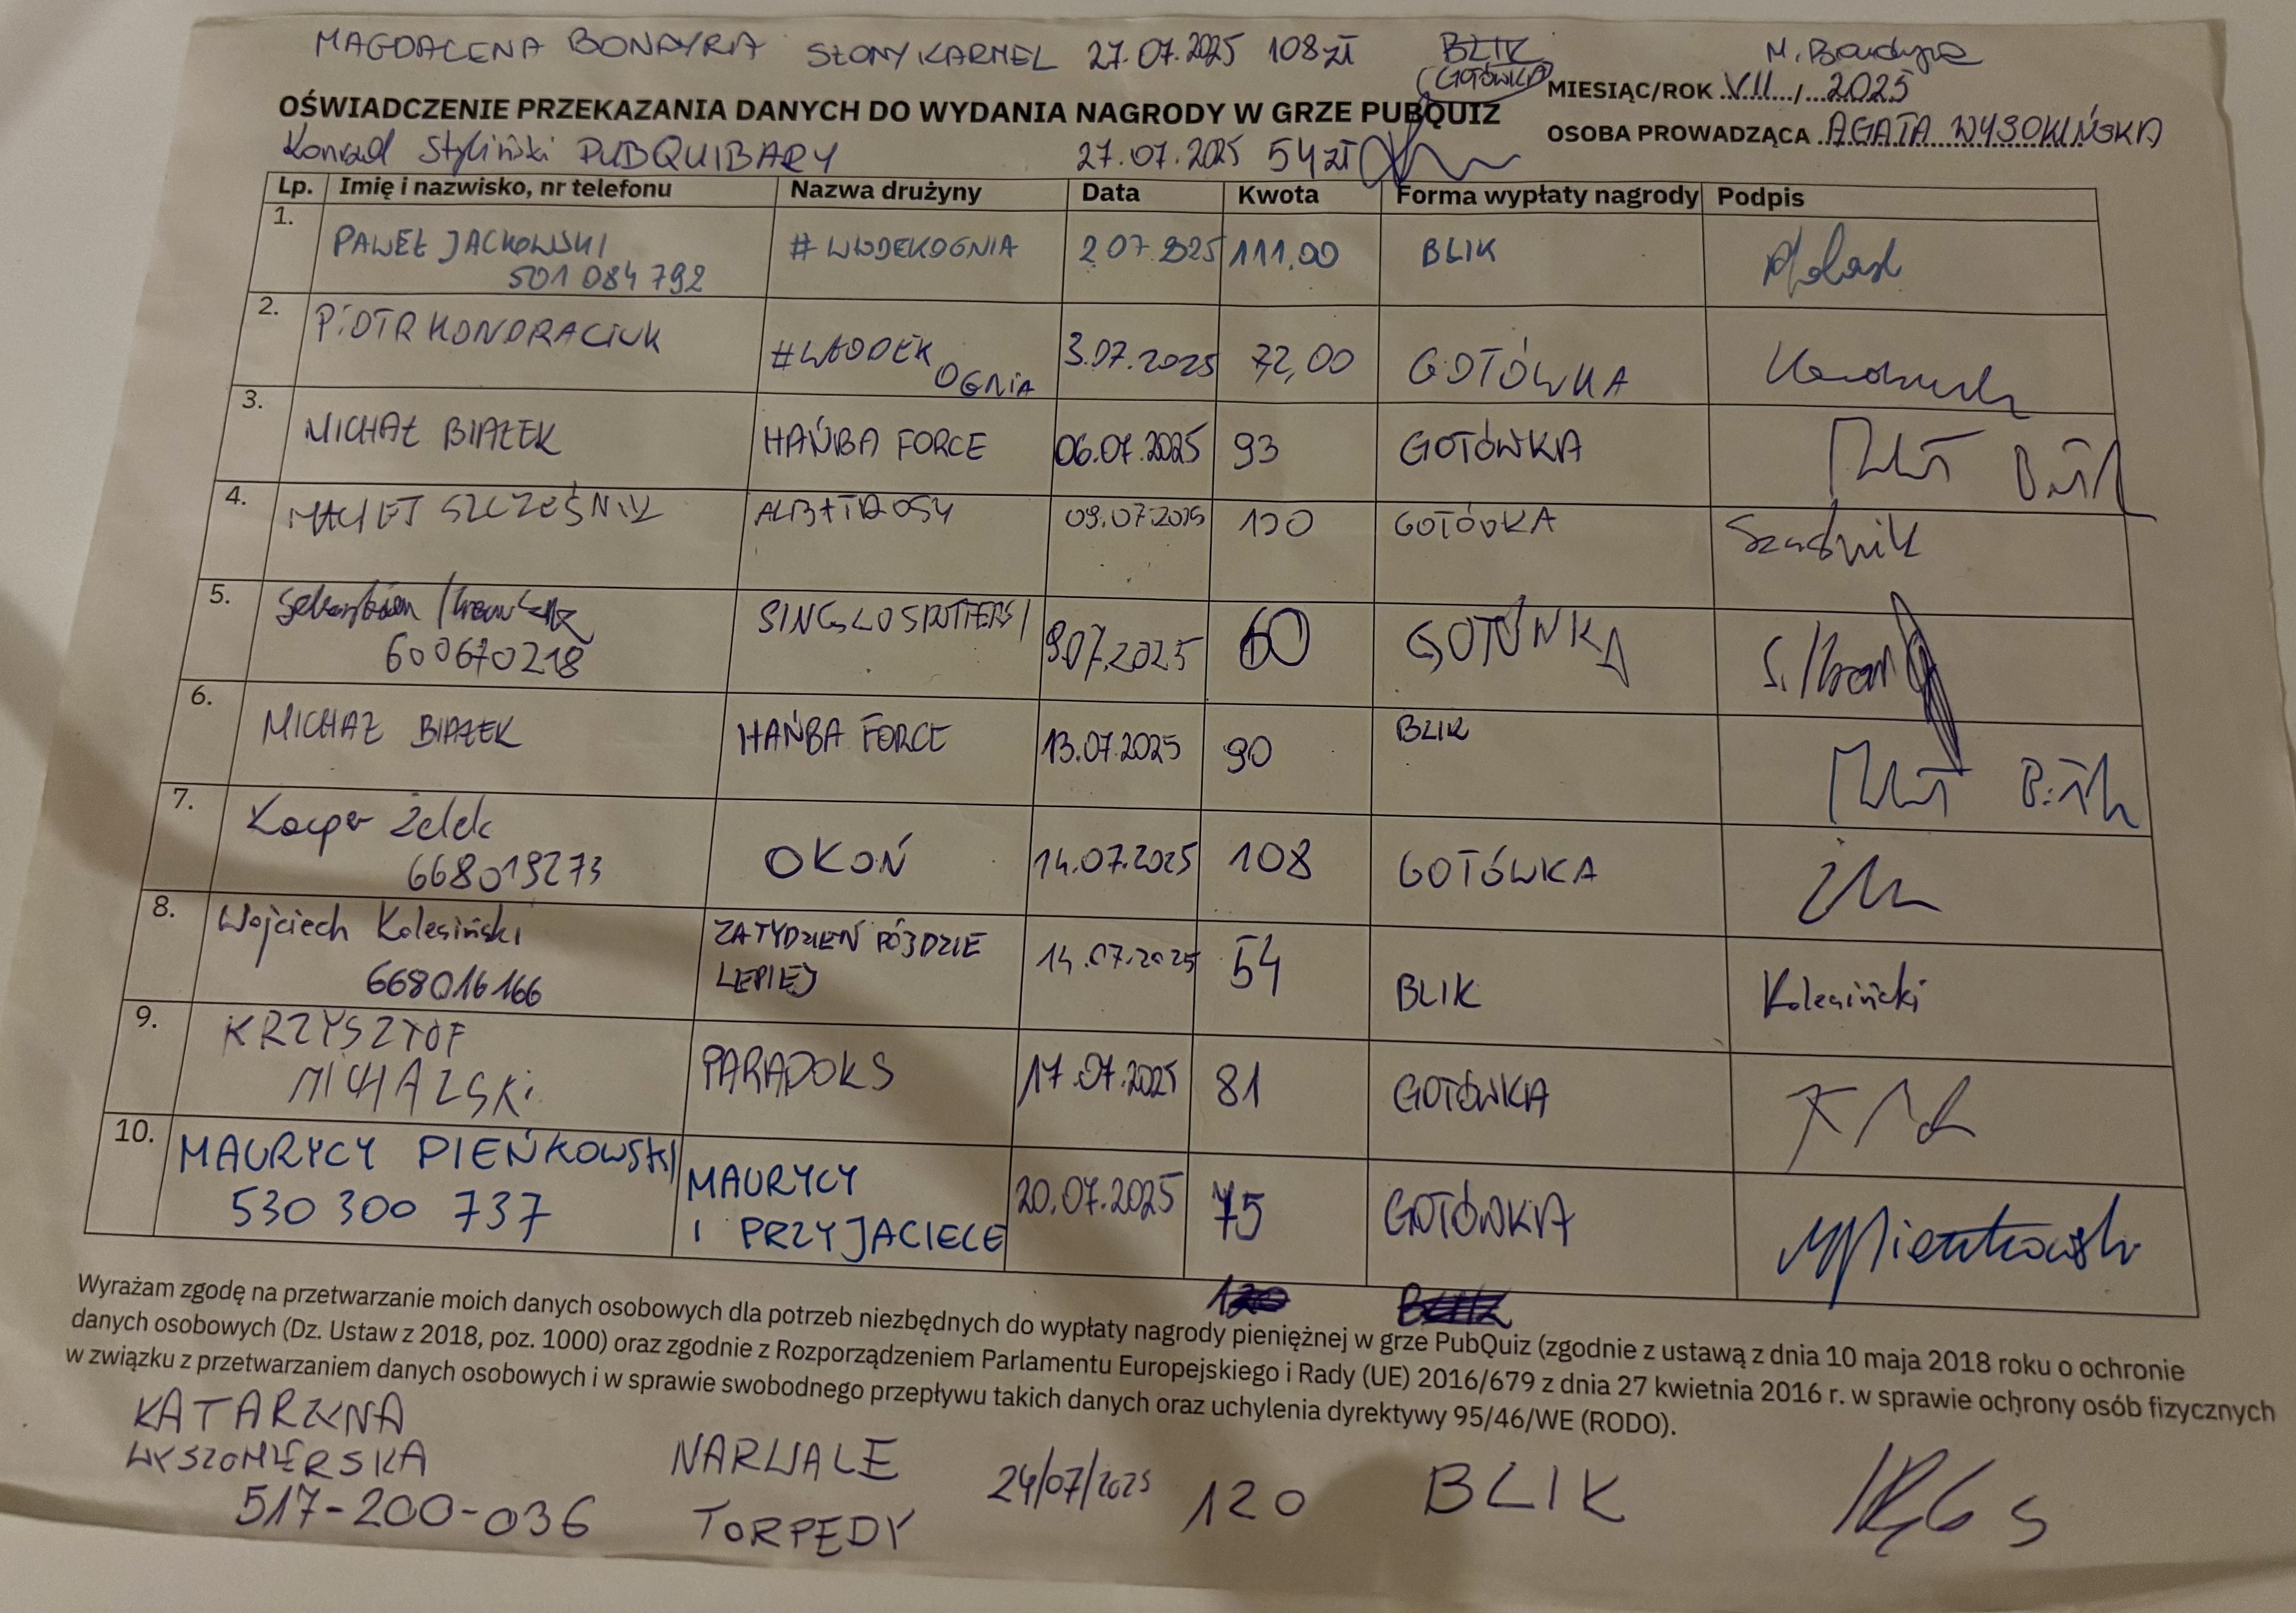 MAGDALENA BONDYRA SŁONY KARMEL 27.07.2025 108 zł BLIK M. Bondyra
GOTÓWKA
MIESIĄC/ROK VII / 2025
OŚWIADCZENIE PRZEKAZANIA DANYCH DO WYDANIA NAGRODY W GRZE PUBQUIZ
OSOBA PROWADZĄCA AGATA WYSOKIŃSKA
Konrad Styliński PUBQUIBARY 27.07.2025 54 zł
Lp. Imię i nazwisko, nr telefonu Nazwa drużyny Data Kwota Forma wypłaty nagrody Podpis
1. PAWEŁ JACKOWSKI #WŁODEKOGNIA 2.07.2025 111,00 BLIK
501 084 792
2. PIOTR KONDRACIUK #WŁODEK OGNIA 3.07.2025 72,00 GOTÓWKA
3. MICHAŁ BIAŁEK HAŃBA FORCE 06.07.2025 93 GOTÓWKA
4. MACIEJ SZCZEŚNIK ALBATROSY 09.07.2025 120 GOTÓWKA Szcześnik
5. Sebastian SINGLOSPOTTERSI 9.07.2025 60 GOTÓWKA
600670218
6. MICHAŁ BIAŁEK HAŃBA FORCE 13.07.2025 90 BLIK
7. Kacper Żelek OKOŃ 14.07.2025 108 GOTÓWKA
668019273
8. Wojciech Kolesiński ZA TYDZIEŃ PÓJDZIE 14.07.2025 54 BLIK Kolesiński
668016166 LEPIEJ
9. KRZYSZTOF PARADOKS 17.07.2025 81 GOTÓWKA
MICHALSKI
10. MAURYCY PIEŃKOWSKI MAURYCY 20.07.2025 75 GOTÓWKA MPienkowski
530 300 737 I PRZYJACIELE
120 BLIK
Wyrażam zgodę na przetwarzanie moich danych osobowych dla potrzeb niezbędnych do wypłaty nagrody pieniężnej w grze PubQuiz (zgodnie z ustawą z dnia 10 maja 2018 roku o ochronie
danych osobowych (Dz. Ustaw z 2018, poz. 1000) oraz zgodnie z Rozporządzeniem Parlamentu Europejskiego i Rady (UE) 2016/679 z dnia 27 kwietnia 2016 r. w sprawie ochrony osób fizycznych
w związku z przetwarzaniem danych osobowych i w sprawie swobodnego przepływu takich danych oraz uchylenia dyrektywy 95/46/WE (RODO).
KATARZYNA NARWALE 24/07/2025 120 BLIK
WYSZOMIERSKA TORPEDY
517-200-036